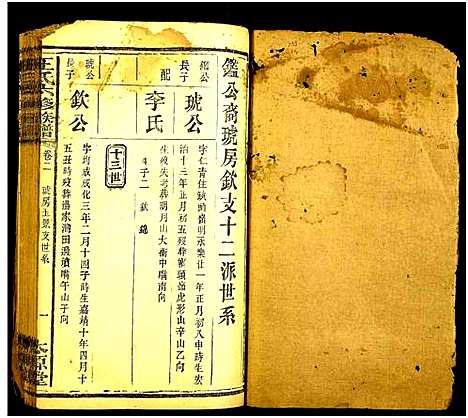 鑑公裔琥房欽支十二派世系
鑑公長子
琥公
字仁青住
明永樂廿一年正月初八申時生宏
治十三年正月初五歿葬獅頭嶺虎形山辛山乙向
配
李氏
生歿失考葬明月山大衝中嘴南向
子二 欽 鐃
十三世
琥公長子
欽公
字均成成化三年二月十四子時生嘉靖十年四月十
五丑時歿葬馮家灣田
嘴午山子向
王氏六修族譜
卷二
琥房上景支世系
一
太原堂